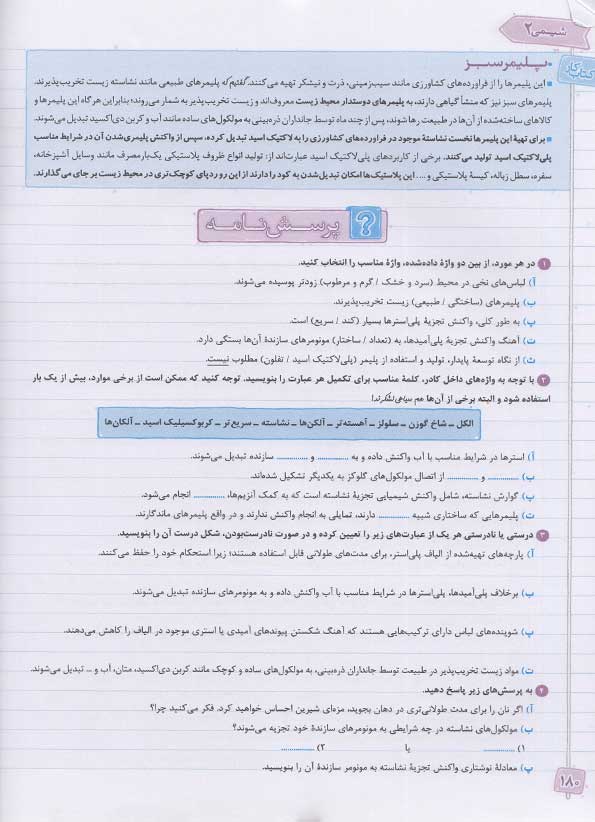 شیمی ۲
کتاب کار
پلیمر سبز
■ این پلیمرها را از فراورده‌های کشاورزی مانند سیب‌زمینی، ذرت و نیشکر تهیه می‌کنند. گفتیم که پلیمرهای طبیعی مانند نشاسته زیست تخریب‌پذیرند.
پلیمرهای سبز نیز که منشأ گیاهی دارند، به پلیمرهای دوستدار محیط زیست معروف‌اند و زیست تخریب‌پذیر به شمار می‌روند؛ بنابراین هر گاه این پلیمرها و
کالاهای ساخته‌شده از آن‌ها در طبیعت رها شوند، پس از چند ماه توسط جانداران ذره‌بینی به مولکول‌های ساده مانند آب و کربن دی‌اکسید تبدیل می‌شوند.
■ برای تهیهٔ این پلیمرها نخست نشاستهٔ موجود در فراورده‌های کشاورزی را به لاکتیک اسید تبدیل کرده، سپس از واکنش پلیمری‌شدن آن در شرایط مناسب
پلی‌لاکتیک اسید تولید می‌کنند. برخی از کاربردهای پلی‌لاکتیک اسید عبارت‌اند از: تولید انواع ظروف پلاستیکی یک‌بار مصرف مانند وسایل آشپزخانه،
سفره، سطل زباله، کیسهٔ پلاستیکی و .... این پلاستیک‌ها امکان تبدیل‌شدن به کود را دارند از این رو ردپای کوچک‌تری در محیط زیست بر جای می‌گذارند.
؟ پرسش‌نامه
۱ در هر مورد، از بین دو واژهٔ داده‌شده، واژهٔ مناسب را انتخاب کنید.
آ) لباس‌های نخی در محیط (سرد و خشک / گرم و مرطوب) زودتر پوسیده می‌شوند.
ب) پلیمرهای (ساختگی / طبیعی) زیست تخریب‌پذیرند.
پ) به طور کلی، واکنش تجزیهٔ پلی‌استرها بسیار (کند / سریع) است.
ت) آهنگ واکنش تجزیهٔ پلی‌آمیدها، به (تعداد / ساختار) مونومرهای سازندهٔ آن‌ها بستگی دارد.
ث) از نگاه توسعهٔ پایدار، تولید و استفاده از پلیمر (پلی‌لاکتیک اسید / تفلون) مطلوب نیست.
۲ با توجه به واژه‌های داخل کادر، کلمهٔ مناسب برای تکمیل هر عبارت را بنویسید. توجه کنید که ممکن است از برخی موارد، بیش از یک بار
استفاده شود و البته برخی از آن‌ها هم سیاهی لشکرند!
الکل ــ شاخ گوزن ــ سلولز ــ آهسته‌تر ــ آلکن‌ها ــ نشاسته ــ سریع‌تر ــ کربوکسیلیک اسید ــ آلکان‌ها
آ) استرها در شرایط مناسب با آب واکنش داده و به ............ و ............ سازنده تبدیل می‌شوند.
ب) ............ و ............ از اتصال مولکول‌های گلوکز به یکدیگر تشکیل شده‌اند.
پ) گوارش نشاسته، شامل واکنش شیمیایی تجزیهٔ نشاسته است که به کمک آنزیم‌ها، ............ انجام می‌شود.
ت) پلیمرهایی که ساختاری شبیه ............ دارند، تمایلی به انجام واکنش ندارند و در واقع پلیمرهای ماندگارند.
۳ درستی یا نادرستی هر یک از عبارت‌های زیر را تعیین کرده و در صورت نادرست‌بودن، شکل درست آن را بنویسید.
آ) پارچه‌های تهیه‌شده از الیاف پلی‌استر، برای مدت‌های طولانی قابل استفاده هستند؛ زیرا استحکام خود را حفظ می‌کنند.
ب) برخلاف پلی‌آمیدها، پلی‌استرها در شرایط مناسب با آب واکنش داده و به مونومرهای سازنده تبدیل می‌شوند.
پ) شوینده‌های لباس دارای ترکیب‌هایی هستند که آهنگ شکستن پیوندهای آمیدی یا استری موجود در الیاف را کاهش می‌دهند.
ت) مواد زیست تخریب‌پذیر در طبیعت توسط جانداران ذره‌بینی، به مولکول‌های ساده و کوچک مانند کربن دی‌اکسید، متان، آب و ... تبدیل می‌شوند.
۴ به پرسش‌های زیر پاسخ دهید.
آ) اگر نان را برای مدت طولانی‌تری در دهان بجوید، مزه‌ای شیرین احساس خواهید کرد. فکر می‌کنید چرا؟
ب) مولکول‌های نشاسته در چه شرایطی به مونومرهای سازندهٔ خود تجزیه می‌شوند؟
۱) ............ یا ۲) ............
پ) معادلهٔ نوشتاری واکنش تجزیهٔ نشاسته به مونومر سازندهٔ آن را بنویسید.
۱۸۰